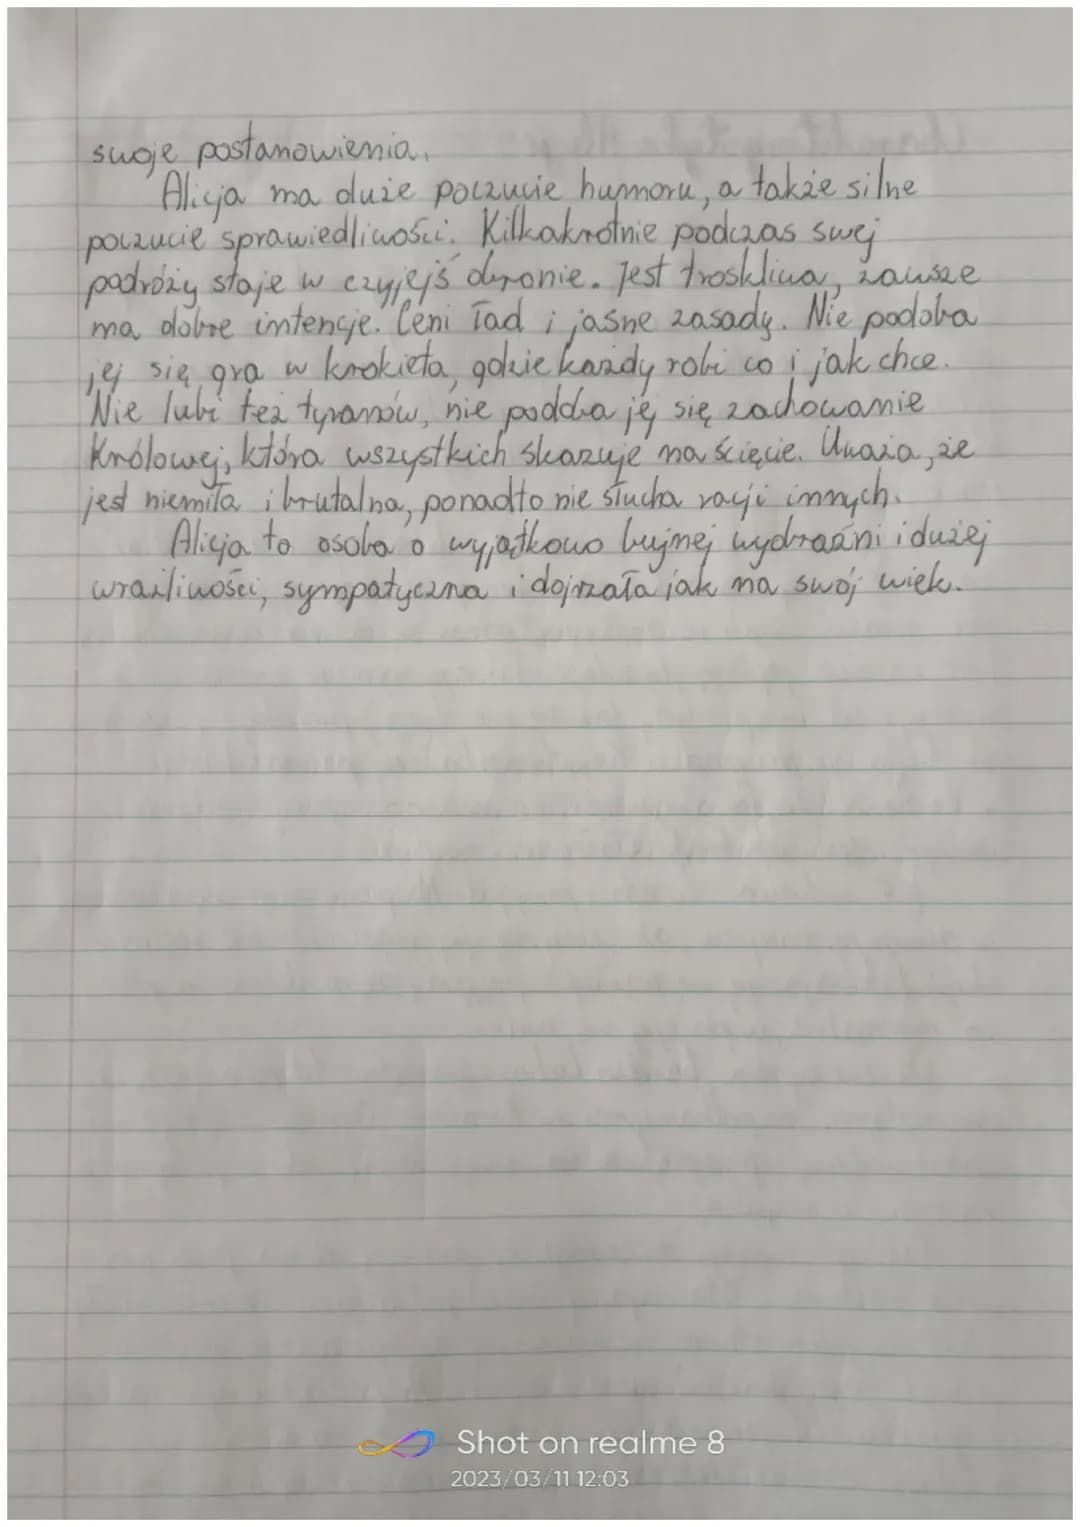 swoje postanowienia.
Alicja ma duże poczucie humoru, a także silne
poczucie sprawiedliwości. Kilkakrotnie podczas swej
podróży staje w czyjejś obronie. Jest troskliwa, zawsze
ma dobre intencje. Ceni ład i jasne zasady. Nie podoba
jej się gra w krokieta, gdzie każdy robi co i jak chce.
Nie lubi też tyranów, nie podoba jej się zachowanie
Królowej, która wszystkich skazuje na ścięcie. Uważa, że
jest niemiła i brutalna, ponadto nie słucha racji innych.
Alicja to osoba o wyjątkowo bujnej wyobraźni i dużej
wrażliwości, sympatyczna i dojrzała jak na swój wiek.
Shot on realme 8
2023/03/11 12:03